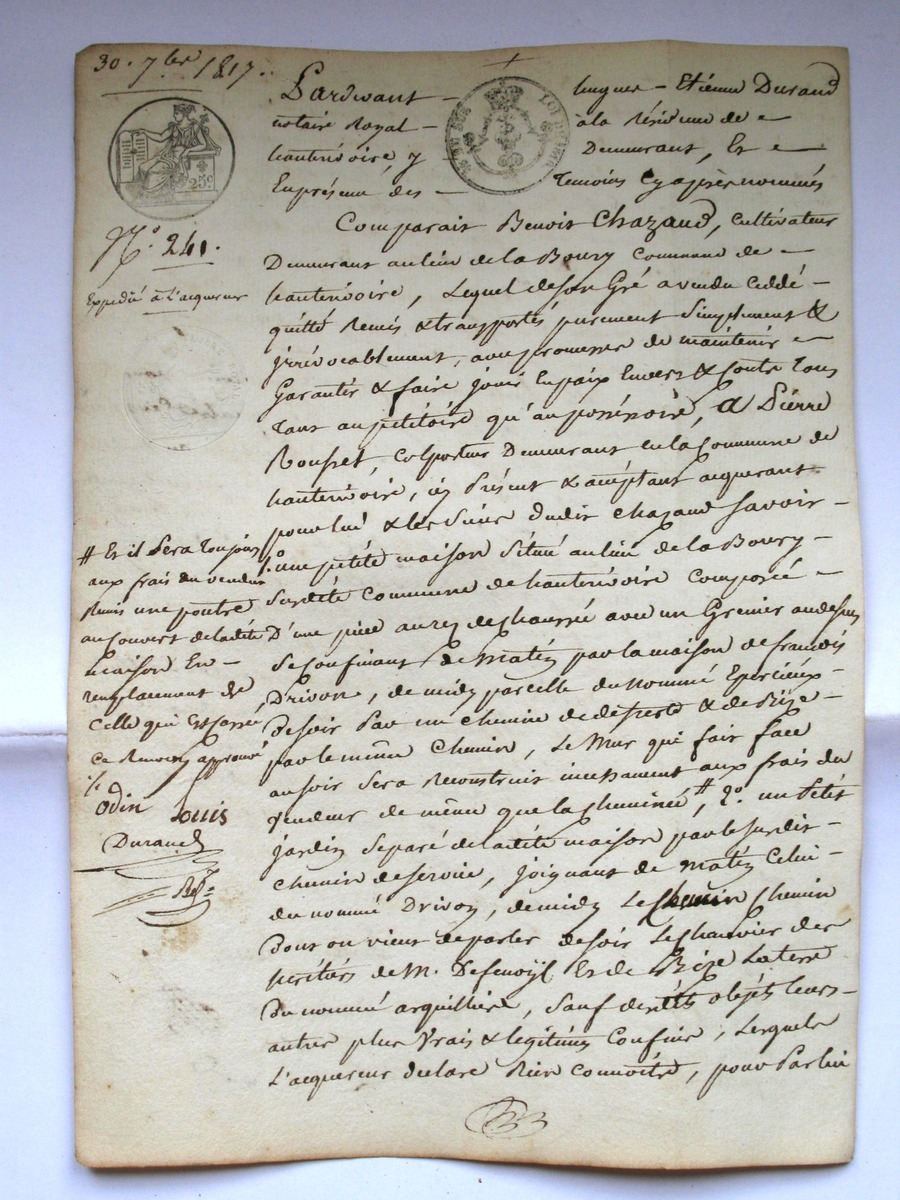 30. 7bre 1817.
Pardevant hugues - Etiénne Durand
notaire Royal à la Résidence de
hauterivoire y Demeurant, Et
Enprésence des Temoins Cy après nommés
25c
N.o 241.
Expedié à L'acquereur
Comparait Benoit Chazaud, Cultivateur
Demeurant aulieu de la Boury Commune de
hauterivoire, Lequel de son Gré a vendu Ceddé
quitté Remis & transportés purement Simplement &
jrrévocablement, avec promesse de maintenir
Garantir & faire jouir Enpaix Envers & Contre Tous
Tant aupétitoire qu'au possessoire, a Piérre
Rousset, Colporteur Demeurant en la Commune de
hauterivoire, icy Présent & acceptant acquerant
pour lui & les Siens dudit Chazaud Savoir
1.o une petite maison Située aulieu de la Boury
Surdite Commune de hauterivoire Composée
D'une pièce aurez de chaussée avec un Grenier audessus
Se Confinant de matin par la maison de francois
Drivon, de midy parcelle du nommé
De soir Par un chemin de désserte & de Bize
par le même Chemin, Le Mur qui fait face
au soir Sera Reconstruit incessament aux frais du
Vendeur de même que la Cheminée #, 2.o un Petit
jardin Separé de ladite maison par le Susdit
Chemin de service, joignant de matin Celui
du nommé Drivon, de midy Le Chemin
Dont on vient de parler de soir Le Chanvier des
héritiers de M. Defenoÿl Et de Bize La terre
Du nommé arquilliere, Sauf desdits objets leurs
autres plus Vrais & legitimes Confins, Lesquels
L'acquereur declare Bien Connoitre, pour Par lui
# Et il Sera Toujours
aux frais du vendeur
Remis une poutre
au Couvert de ladite
maison En
remplacement de
Celle qui Est Cassée
Ce Renvoy approuvé
Odin Louis
Durand